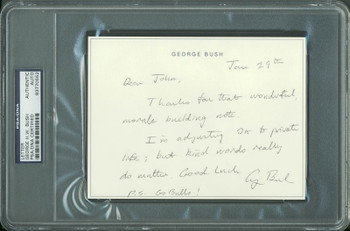 GEORGE BUSH
Jan 29th
Dear John,
Thanks for that wonderful,
morale building note.
I am adjusting OK to private
life; but kind words really
do matter. Good Luck
G Bush
P.S. Go Bulls!
LETTER
GEORGE H.W. BUSH
PSA/DNA CERTIFIED
AUTHENTIC
AUTO